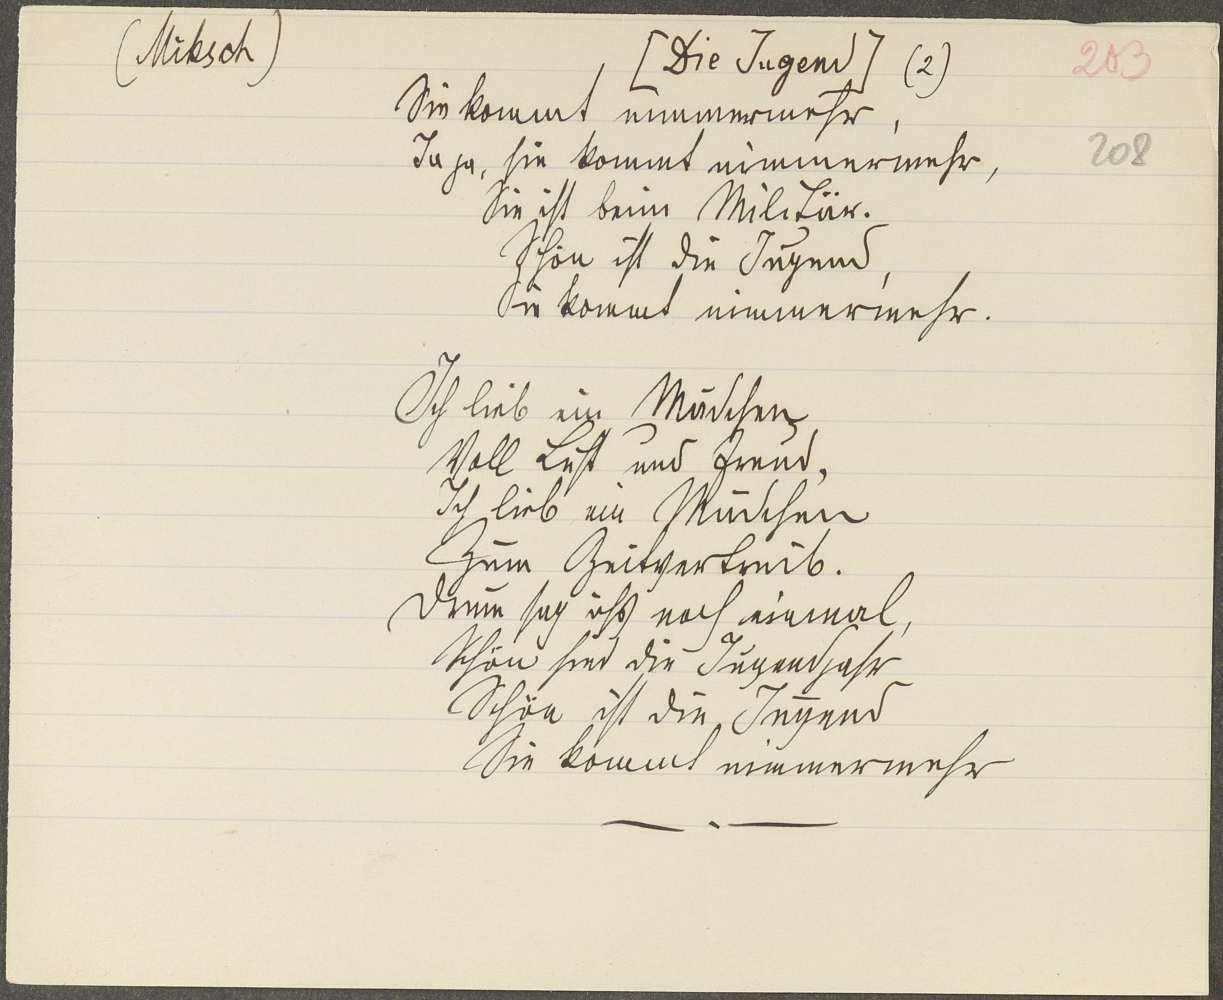 (Miksch) [Die Jugend] (2) 203
Sie kommt nimmermehr,
Ja ja, sie kommt nimmermehr, 208
Sie ist beim Militär.
Schön ist die Jugend,
Sie kommt nimmermehr.
Ich lieb ein Mädchen,
Voll Lust und Freud,
Ich lieb ein Mädchen
Zum Zeitvertreib.
Drum sag ichs noch einmal,
Schön sind die Jugendjahr
Schön ist die Jugend
Sie kommt nimmermehr